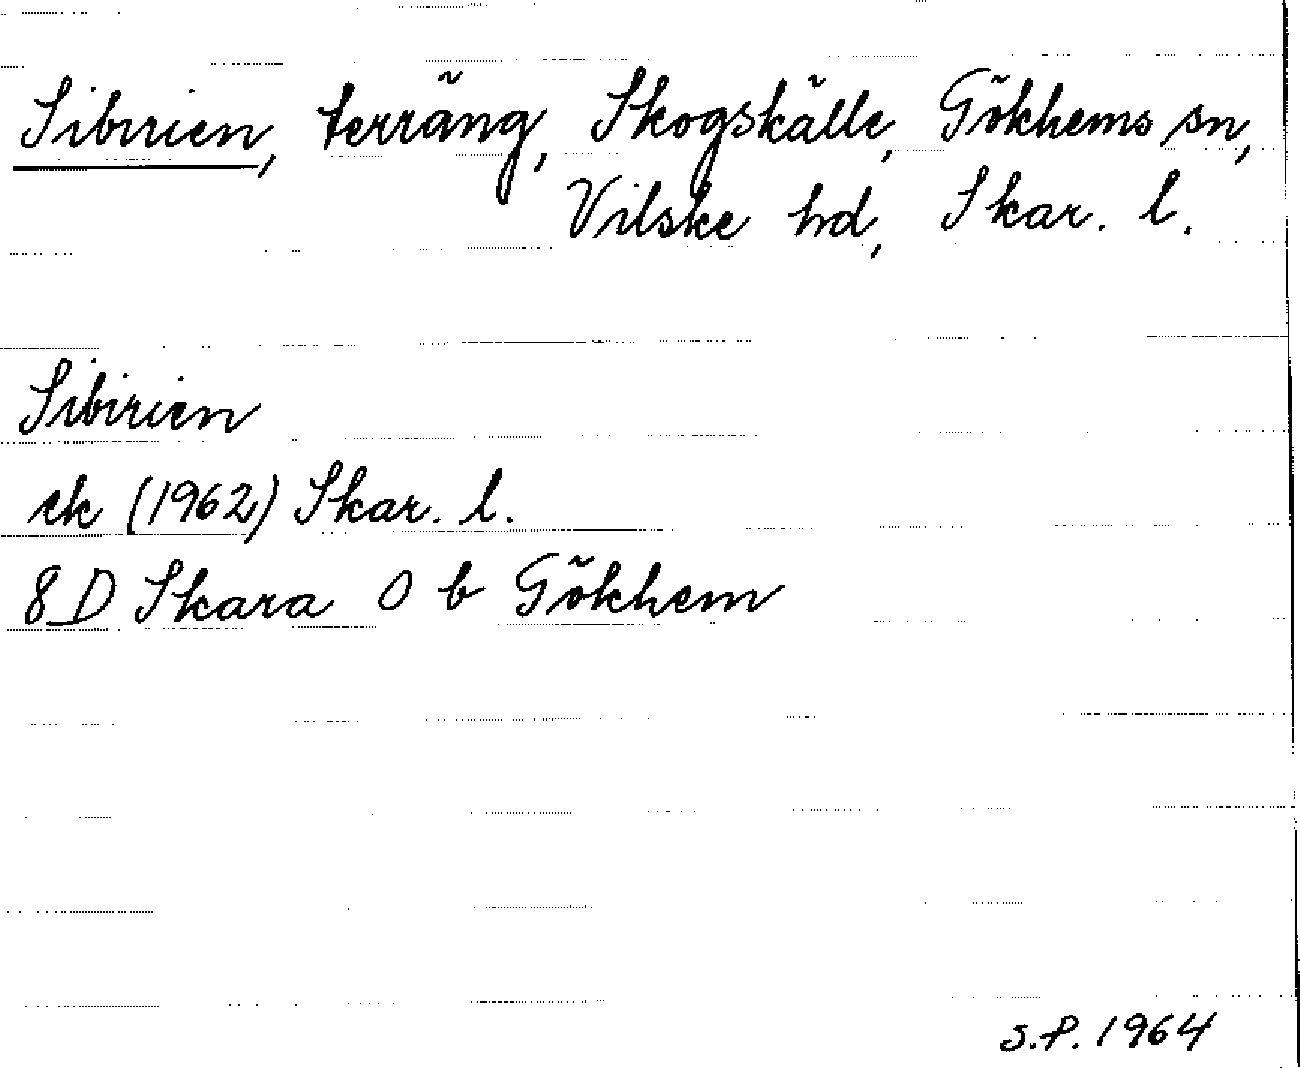 Sibirien, terräng, Skogskälle, Gökhems sn,
Vilske hd, Skar. l.
Sibirien
ek (1962) Skar. l.
8 D Skara 0 b Gökhem
S.P. 1964